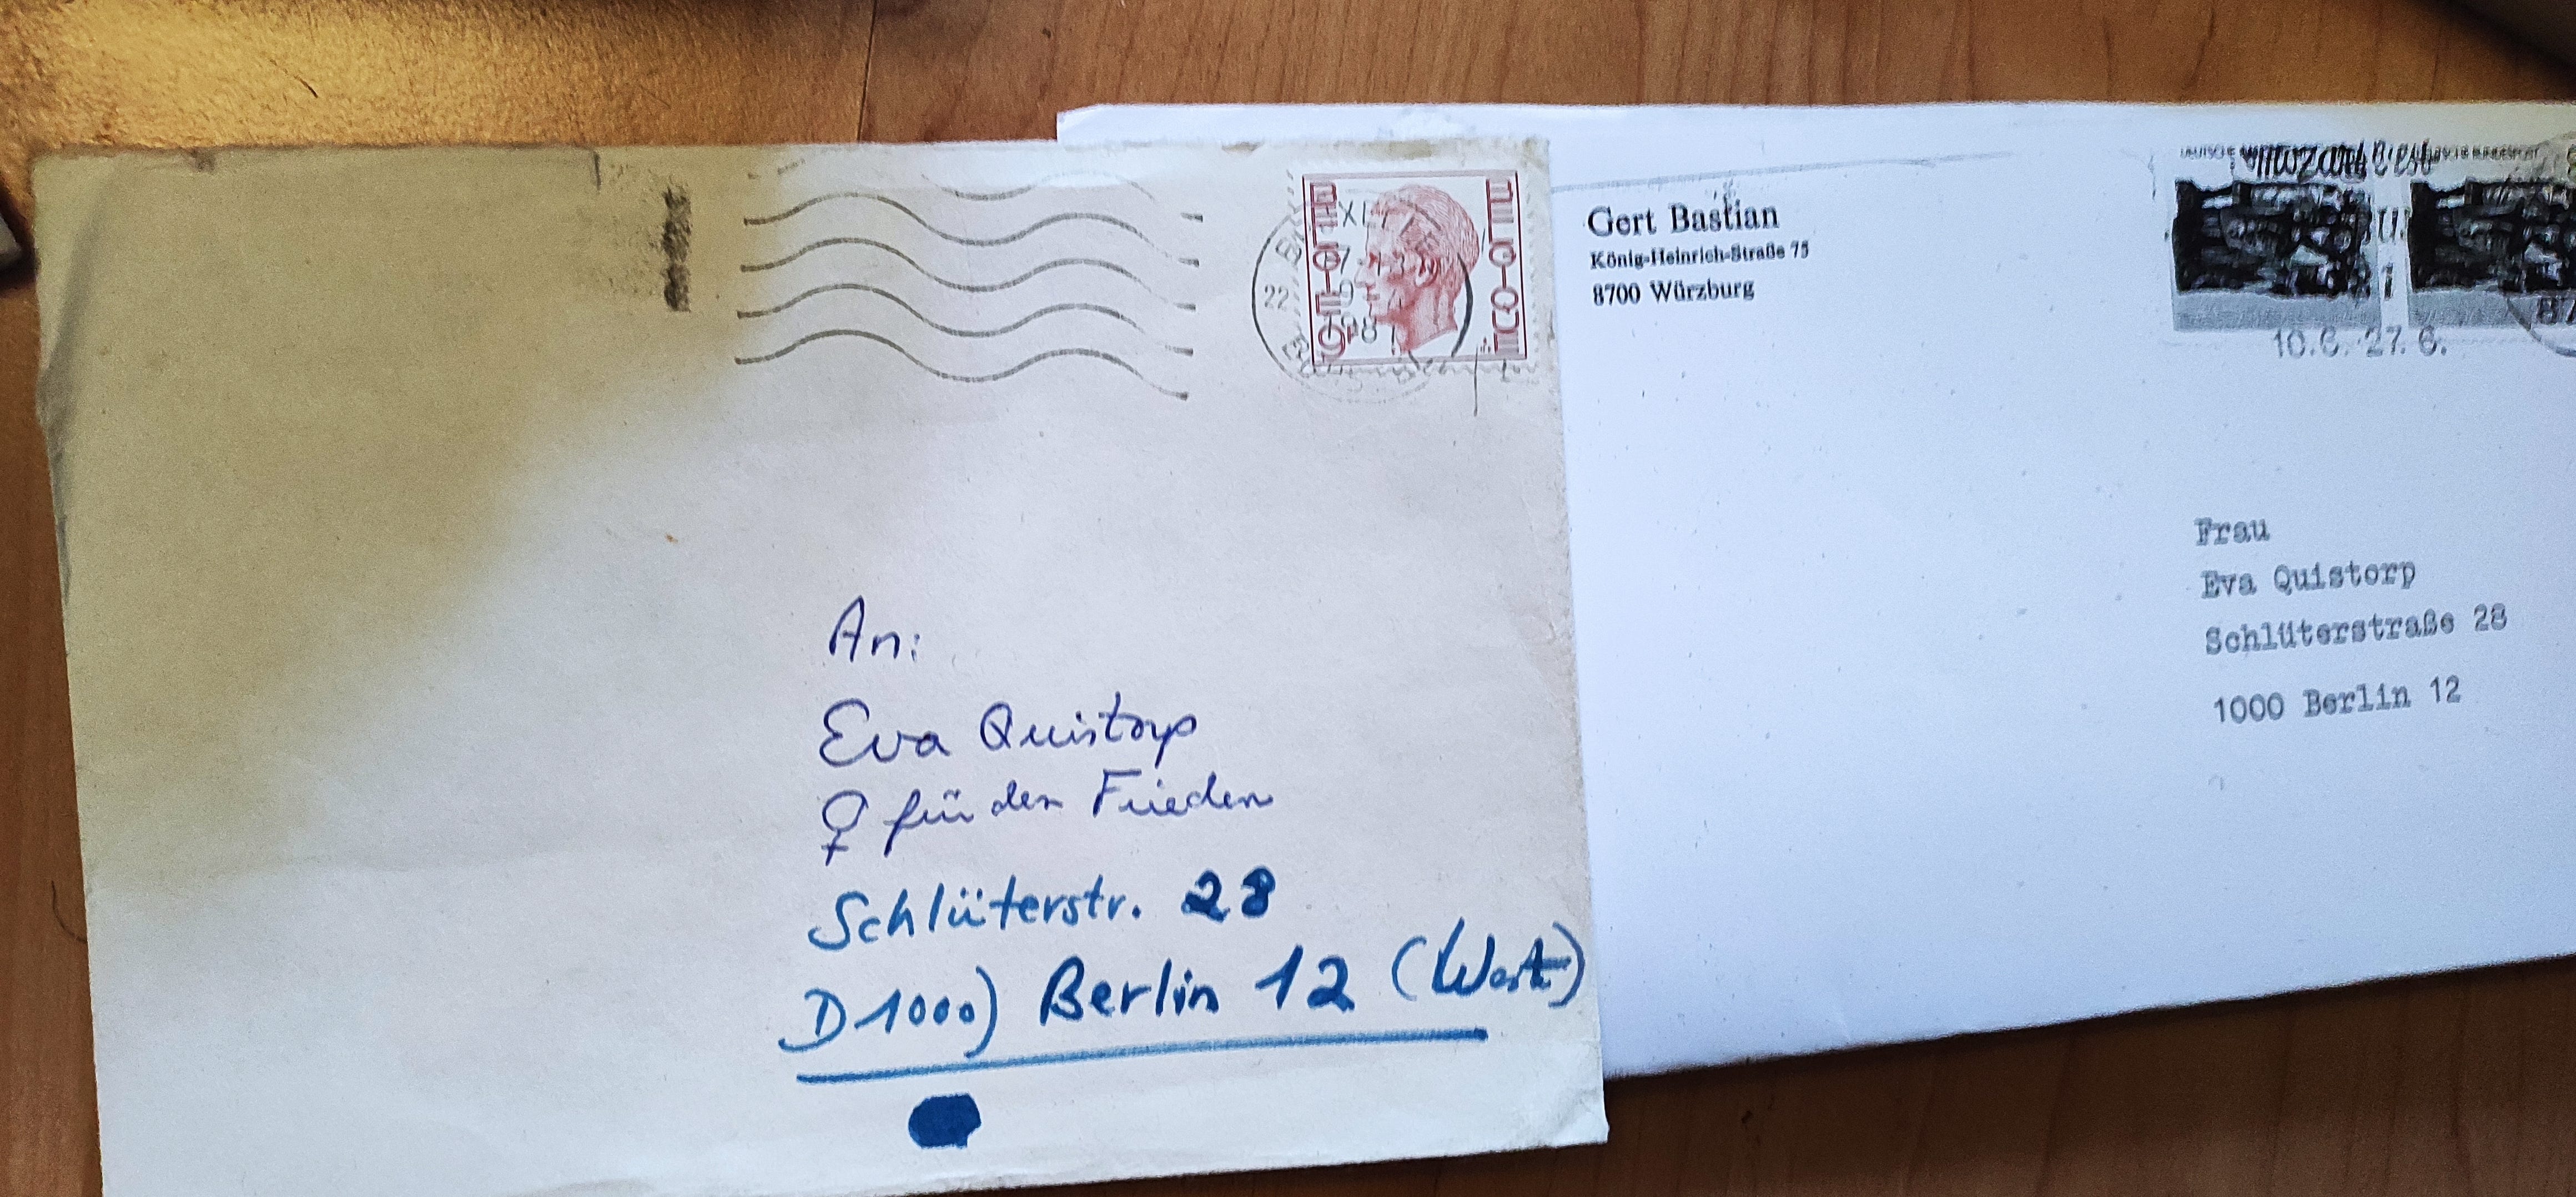 BELGIË
BELGIQUE
22
An:
Eva Quistorp
♀ für den Frieden
Schlüterstr. 28
D 1000) Berlin 12 (West)
Gert Bastian
König-Heinrich-Straße 75
8700 Würzburg
Mozartfest
10.6. 27.6.
87
Frau
Eva Quistorp
Schlüterstraße 28
1000 Berlin 12